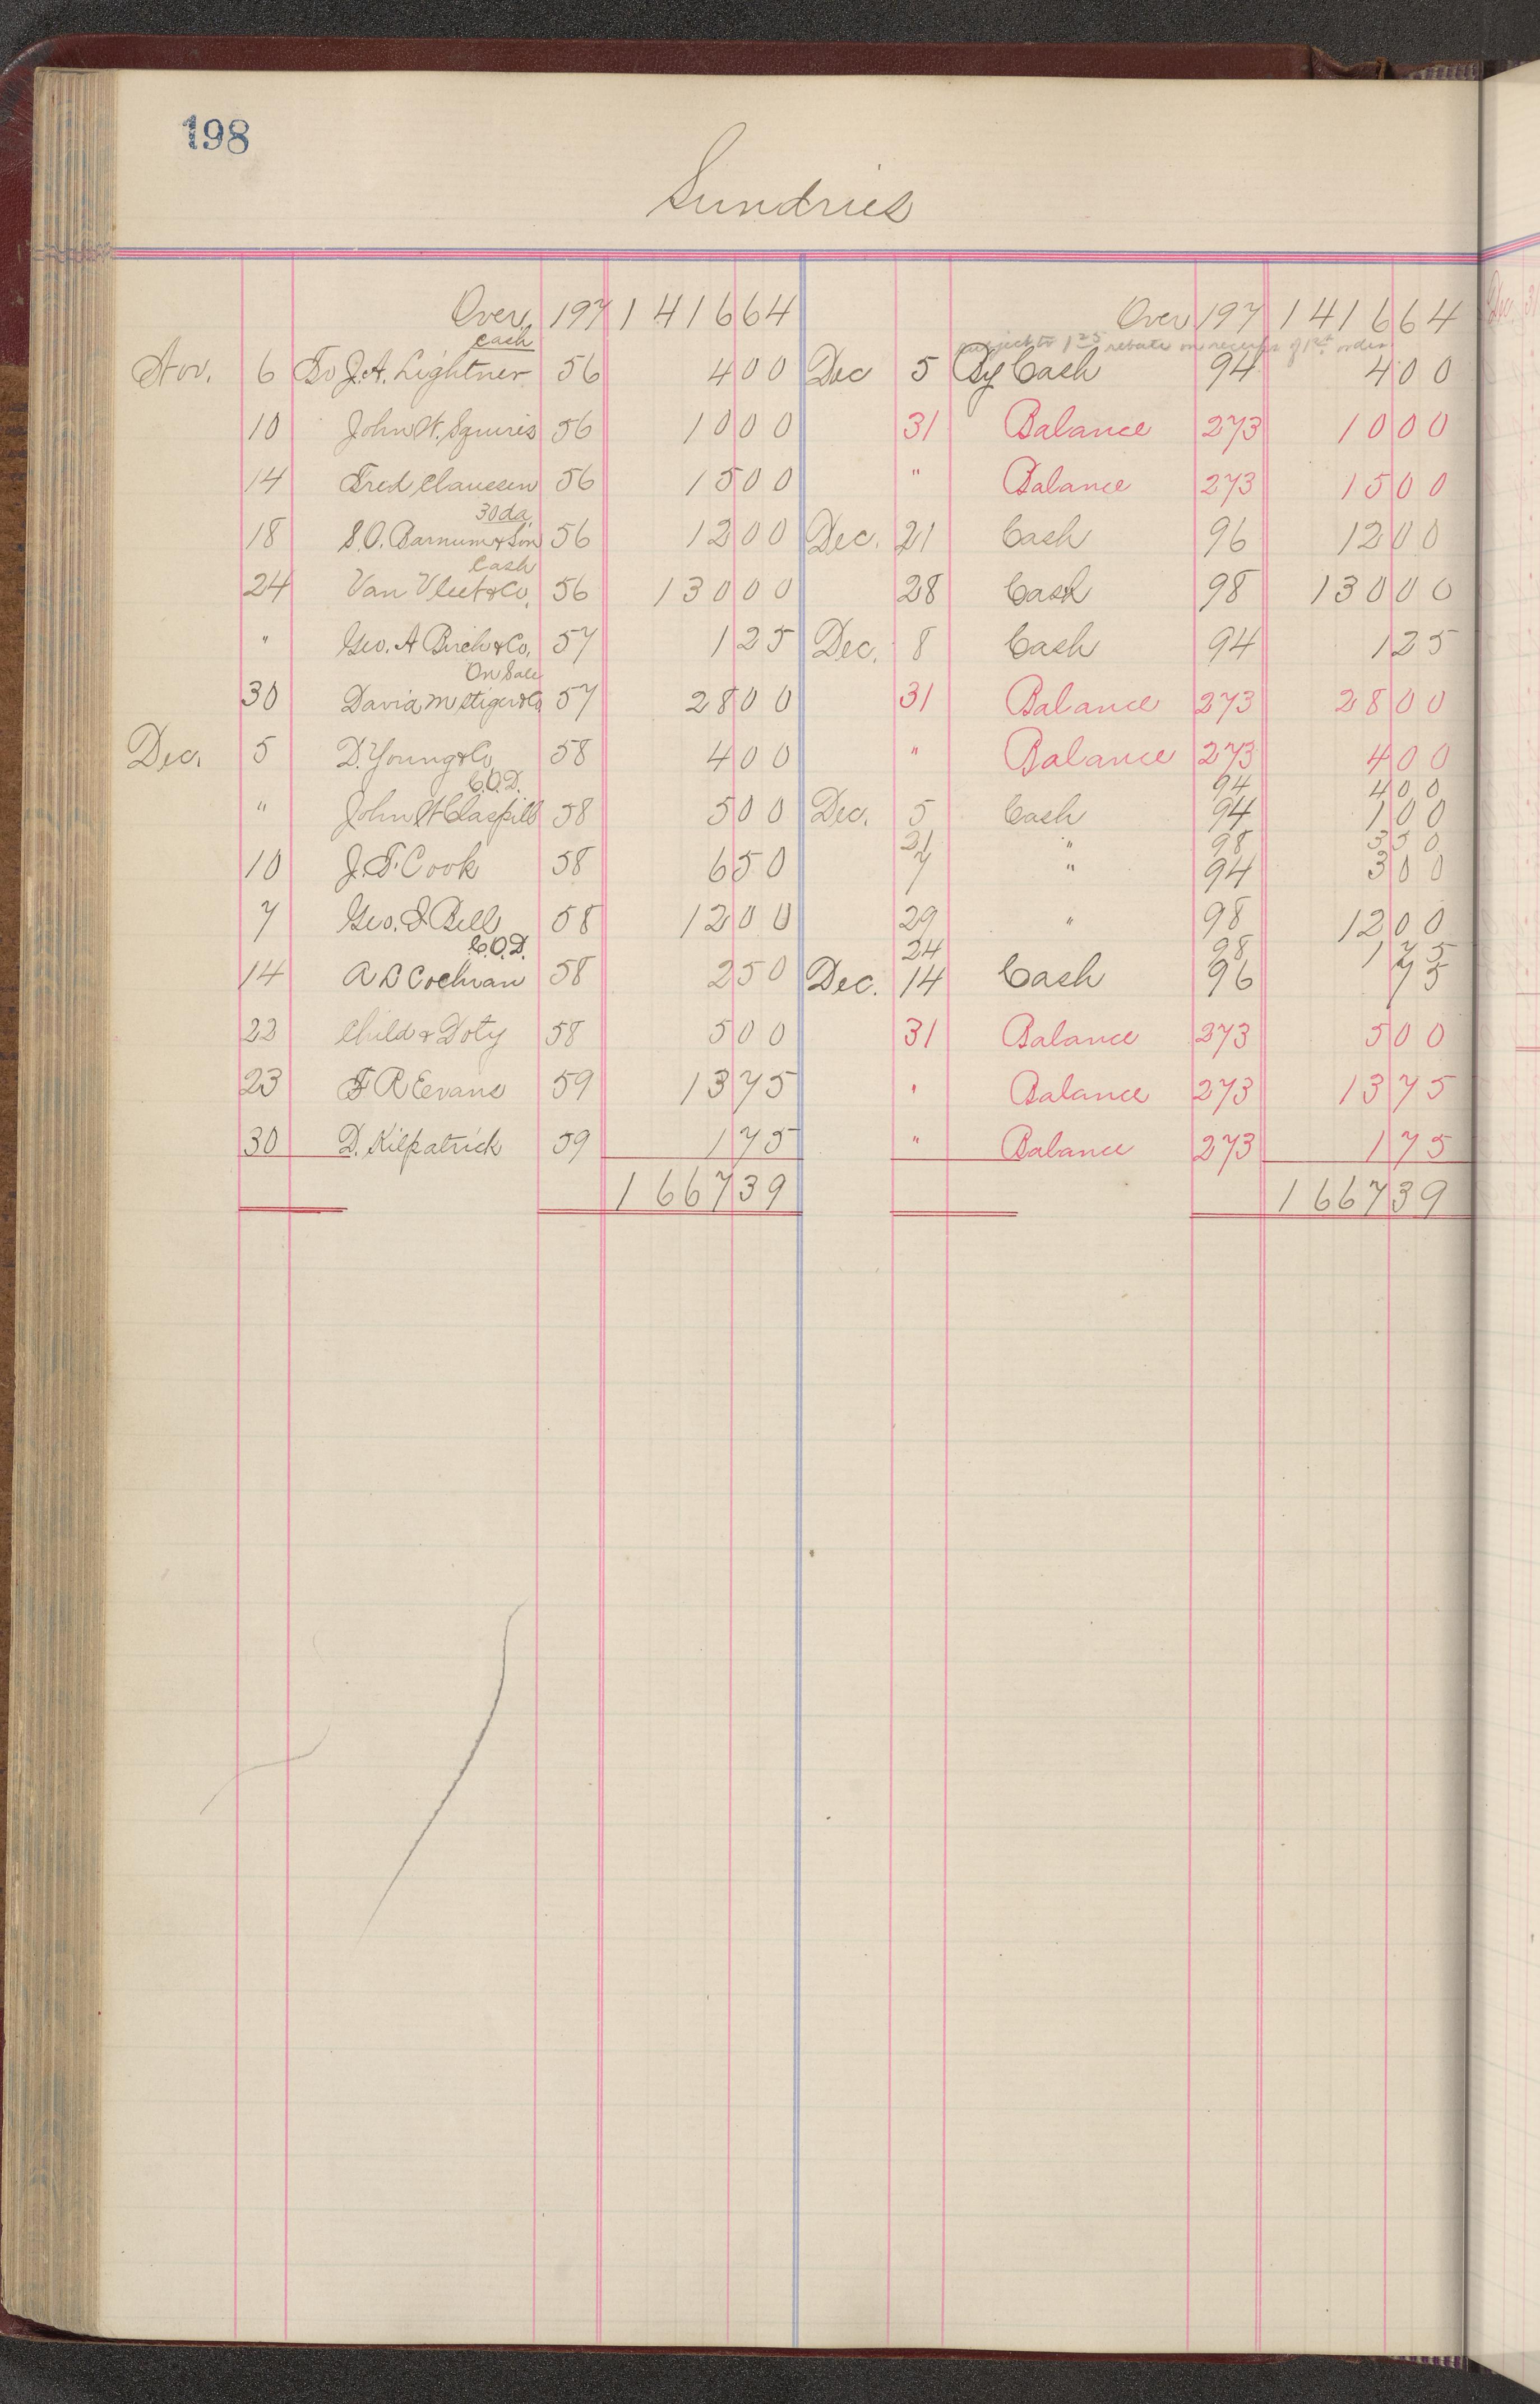 198
Sundries
Over 197 1416 64 Over 197 1416 64
Cash subject to 1 25 rebate on receipt of 1st order
Nov. 6 To J.A. Lightner 56 4 00 Dec 5 By Cash 94 4 00
10 John W. Squires 56 10 00 31 Balance 273 10 00
14 Fred Claussen 56 15 00 " Balance 273 15 00
30 da.
18 S.O. Barnum & Son 56 12 00 Dec. 21 Cash 96 12 00
Cash
24 Van Vleet & Co. 56 130 00 28 Cash 98 130 00
" Geo. A Birch & Co. 57 1 25 Dec. 8 Cash 94 1 25
On Sale
30 David M Stiger & Co 57 28 00 31 Balance 273 28 00
Dec. 5 D. Young & Co 58 4 00 " Balance 273 4 00
C.O.D. 94 4 00
" John W Claspill 58 5 00 Dec. 5 Cash 94 1 00
31 " 98 3 50
10 J.F. Cook 58 6 50 7 " 94 3 00
7 Geo. S. Bell 58 12 00 29 " 98 12 00
C.O.D. 24 98 1 75
14 A B Cochran 58 2 50 Dec. 14 Cash 96 75
22 Child & Doty 58 5 00 31 Balance 273 5 00
23 F R Eevans 59 13 75 " Balance 273 13 75
30 D. Kilpatrick 59 1 75 " Balance 273 1 75
1667 39 1667 39